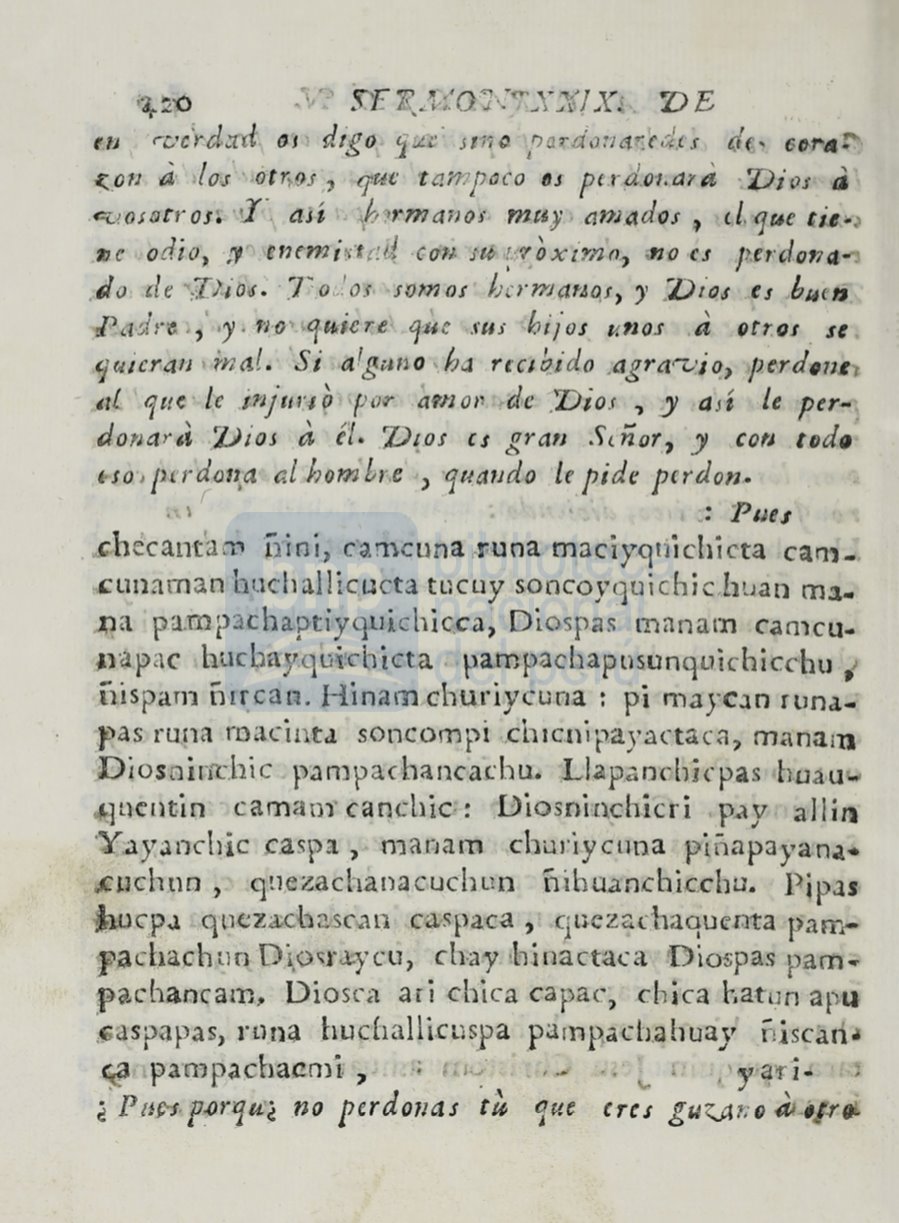 420 SERMON XXIX. DE
en verdad os digo que sino perdonaredes de cora-
zon à los otros, que tampoco os perdonarà Dios à
vosotros. Y así hermanos muy amados, el que tie-
ne odio, y enemistad con su pròximo, no es perdona-
do de Dios. Todos somos hermanos, y Dios es buen
Padre, y no quiere que sus hijos unos à otros se
quieran mal. Si alguno ha recibido agravio, perdone
al que le injuriò por amor de Dios, y así le per-
donarà Dios à él. Dios es gran Señor, y con todo
eso perdona al hombre, quando le pide perdon.
: Pues
checantam ñini, camcuna runa maciyquichicta cam-
cunaman huchallicucta tucuy soncoyquichic huan ma-
na pampachaptiyquichicca, Diospas manam camcu-
napac huchayquichicta pampachapusunquichicchu,
ñispam ñircan. Hinam churiycuna : pi maycan runa-
pas runa macinta soncompi chicnipayactaca, manam
Diosninchic pampachancachu. Llapanchicpas huau-
quentin camam canchic : Diosninchicri pay allin
Yayanchic caspa, manam churiycuna piñapayana-
cuchun, quezachanacuchun ñihuanchicchu. Pipas
hucpa quezachascan caspaca, quezachaquenta pam-
pachachun Diosraycu, chay hinactaca Diospas pam-
pachancam. Diosca ari chica capac, chica hatun apu
caspapas, runa huchallicuspa pampachahuay ñiscan-
ca pampachacmi, yari-
¿ Pues porquè no perdonas tù que eres guzano à otro